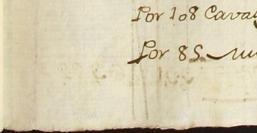 Por 108 Cava
Por 85